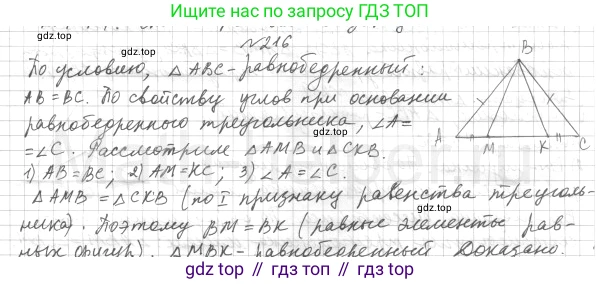 Ищите нас по запросу ГДЗ ТОП
№216
gdz.top
По условию, △ABC - равнобедренный:
AB=BC. По свойству углов при основании
равнобедренного треугольника, ∠A=
=∠C. Рассмотрим △AMB и △CKB.
1) AB=BC; 2) AM=KC; 3) ∠A=∠C.
△AMB=△CKB (по I признаку равенства треуголь-
ника). Поэтому BM=BK (равные элементы рав-
ных фигур). △MBK - равнобедренный Доказано.
B
A
M
K
C
gdz.top
gdz.top
gdz.top
gdz.top
gdz.top // гдз.топ // gdz.top